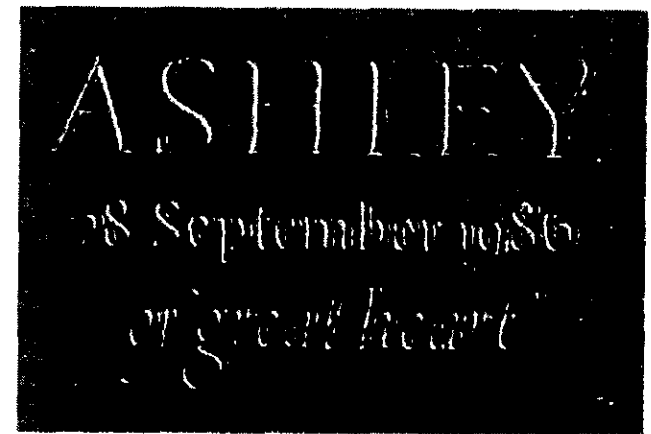 ASHLEY
September 1986
great heart